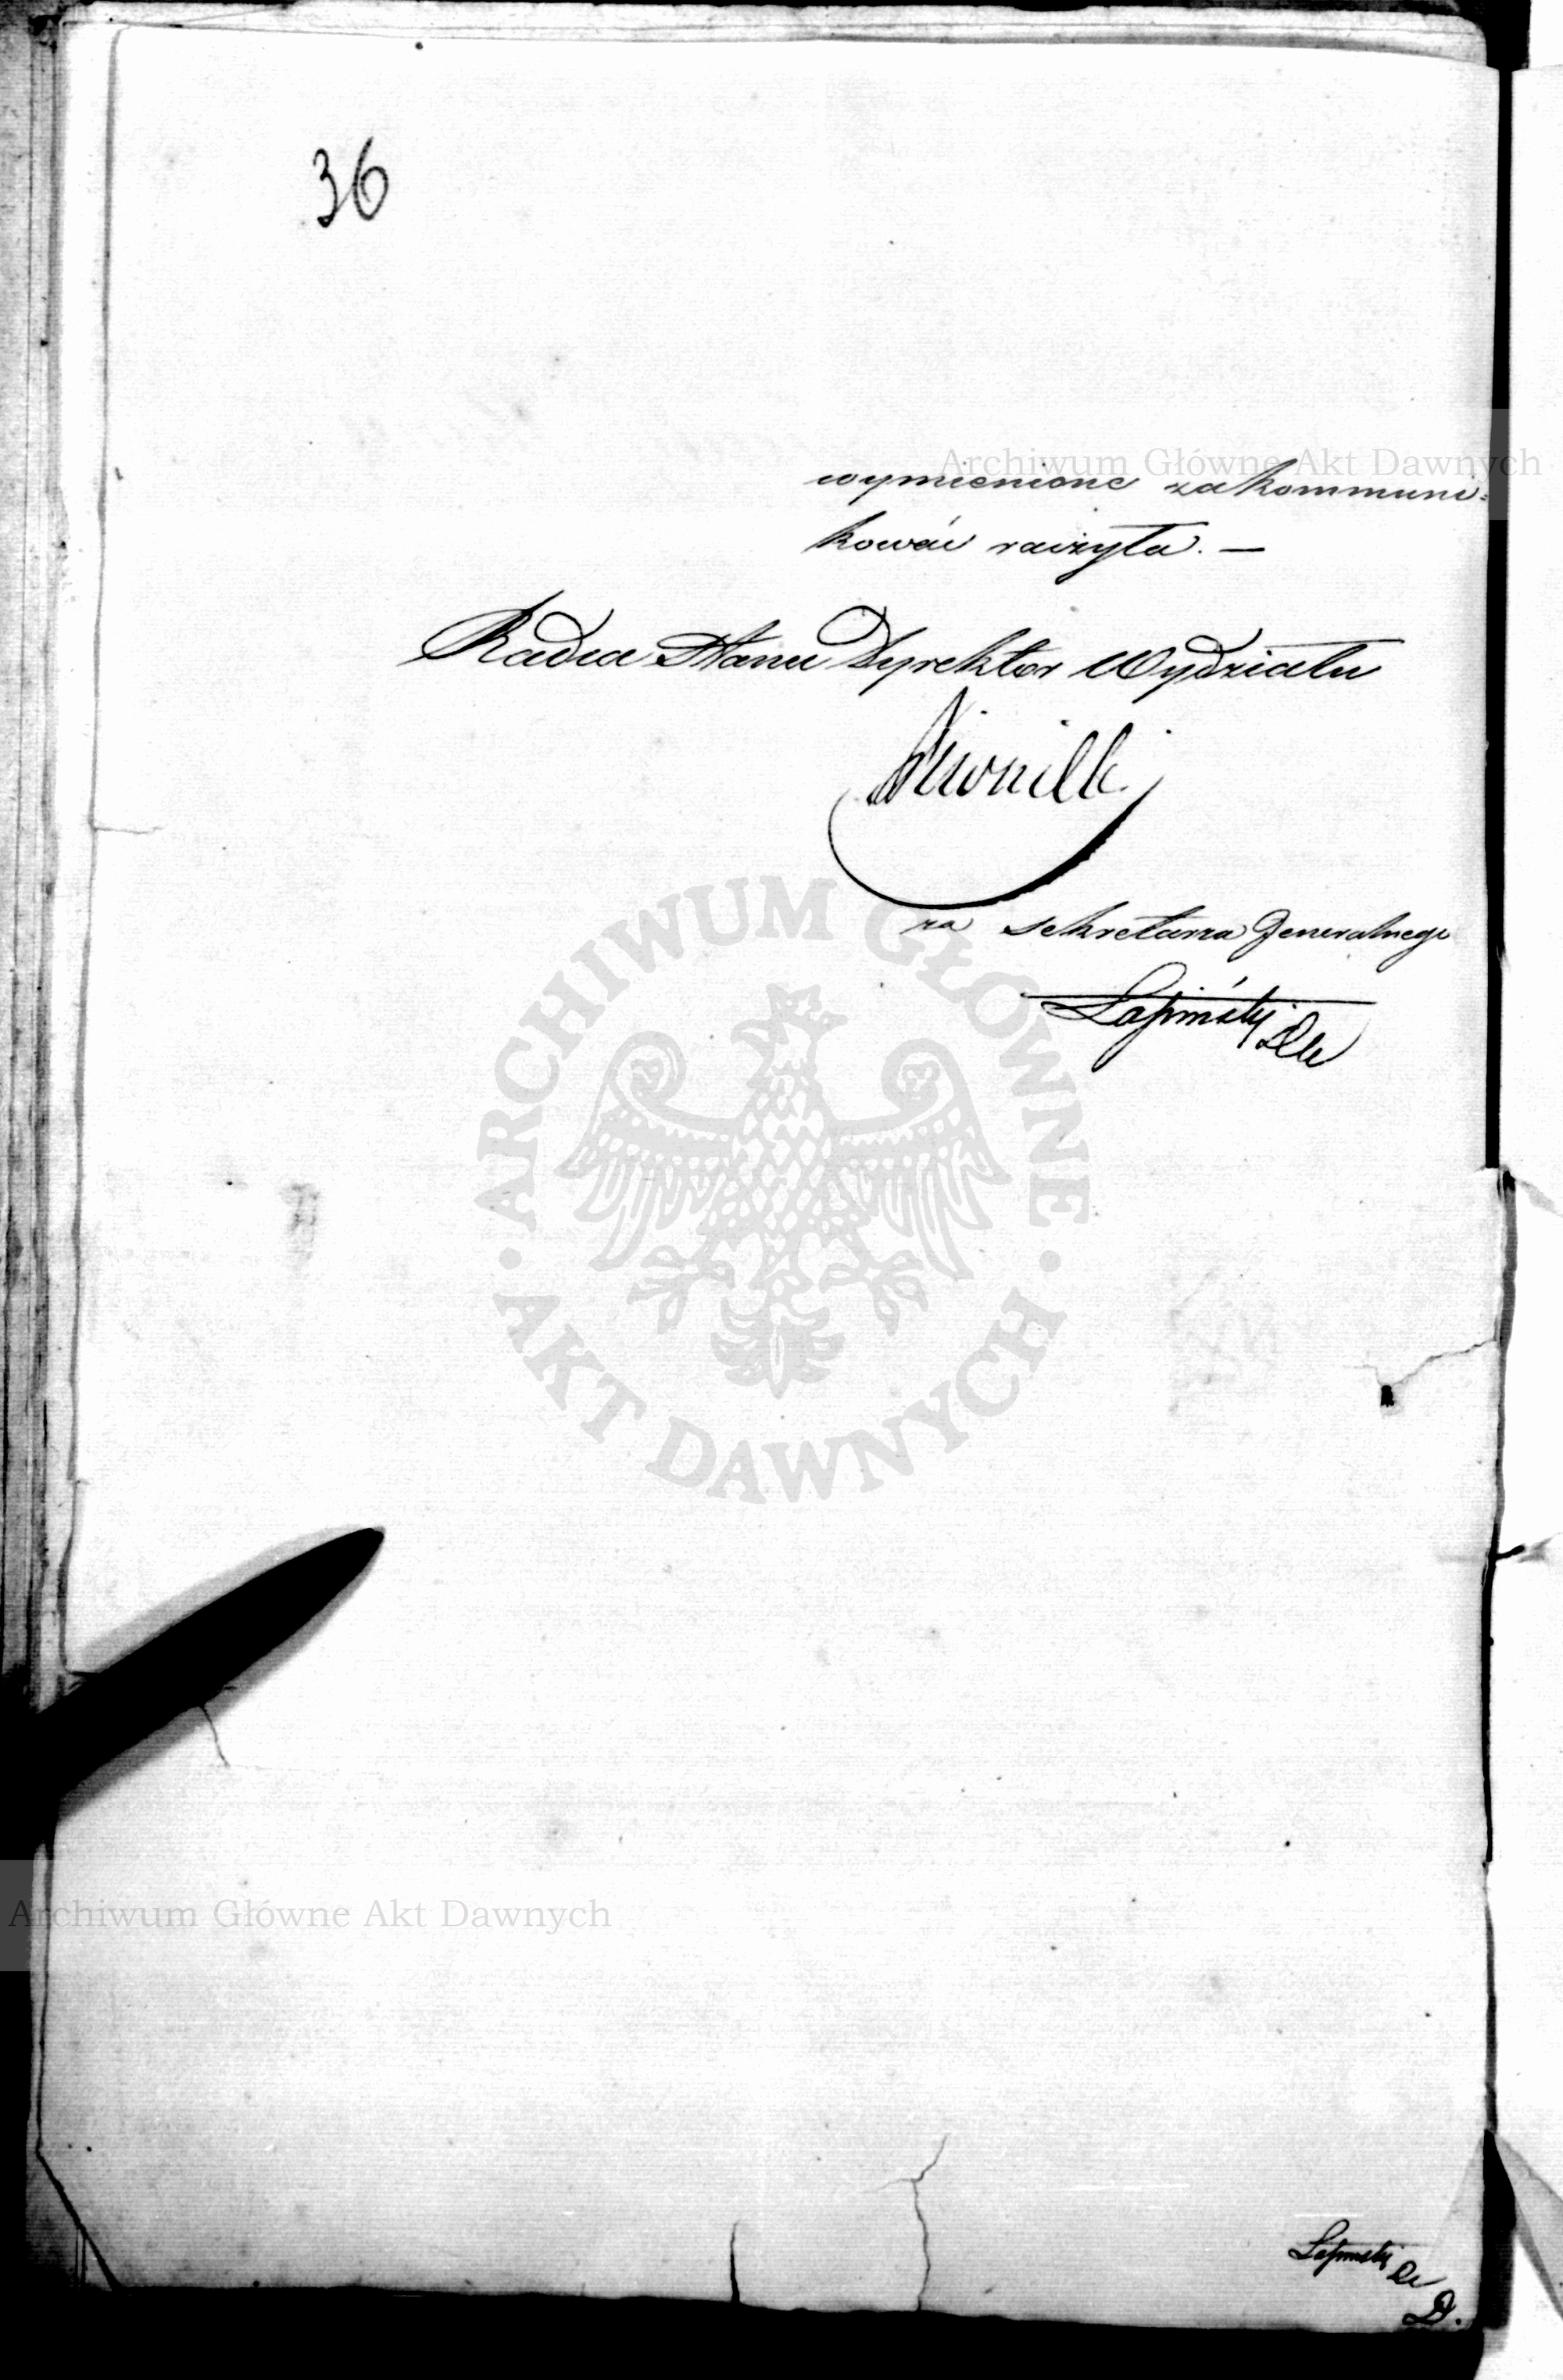 36
Archiwum Główne Akt Dawnych
wymienione zakommuni=
kować raczyła. —
Radca Stanu Dyrektor Wydziału
za Sekretarza Jeneralnego
Łapiński
ARCHIWUM GŁÓWNE
AKT DAWNYCH
Archiwum Główne Akt Dawnych
Łapiński